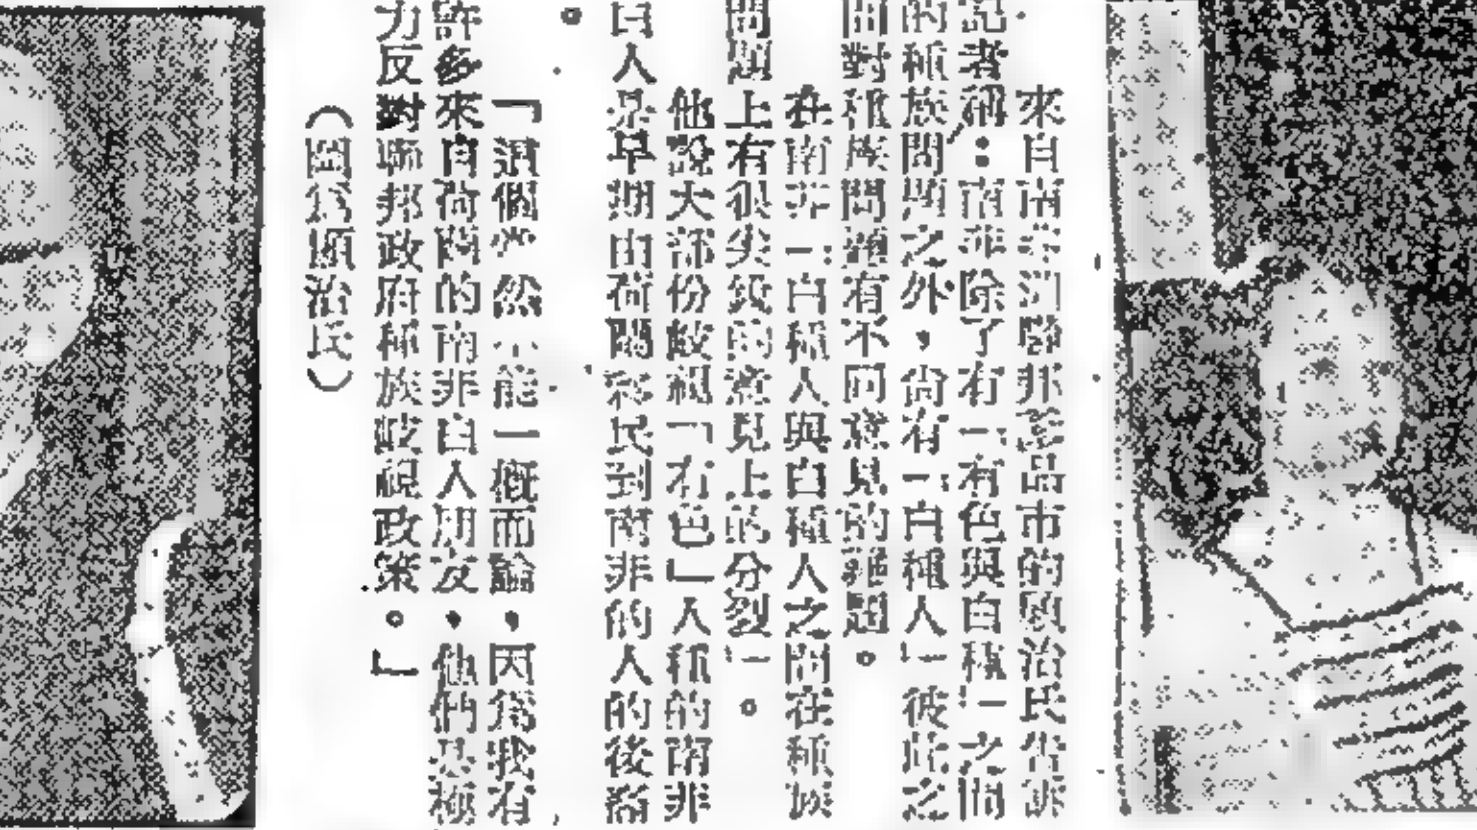 來自南非聯邦彭品市的顧治氏告訴
記者稱：南非除了有「有色與白種」之間
的種族問題之外，尚有「白種人」彼此之
間對種族問題有不同意見的難題。
在南非「白種人與白種人之間在種族
問題上有很尖銳的意見上的分裂」。
他說大部份歧視「有色」人種的南非
白人是早期由荷蘭移民到南非的人的後裔
。
「這個當然不能一概而論，因為我有
許多來自荷蘭的南非白人朋友，他們是極
力反對聯邦政府種族歧視政策。」
（圖為顧治氏）